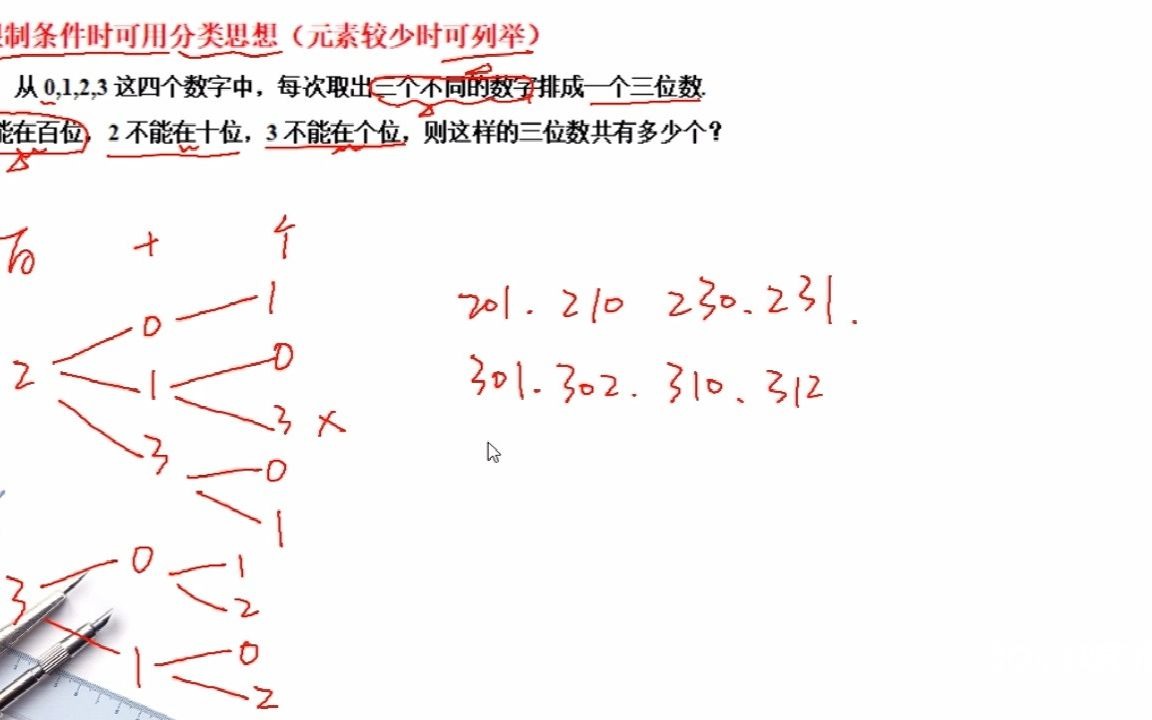 限制条件时可用分类思想（元素较少时可列举）
从 0,1,2,3 这四个数字中，每次取出三个不同的数字排成一个三位数.
能在百位，2 不能在十位，3 不能在个位，则这样的三位数共有多少个？
百 十 个
2 0 1
1 0
3 ×
3 0
1
3 0 1
2
1 0
2
201. 210 230. 231.
301. 302. 310. 312